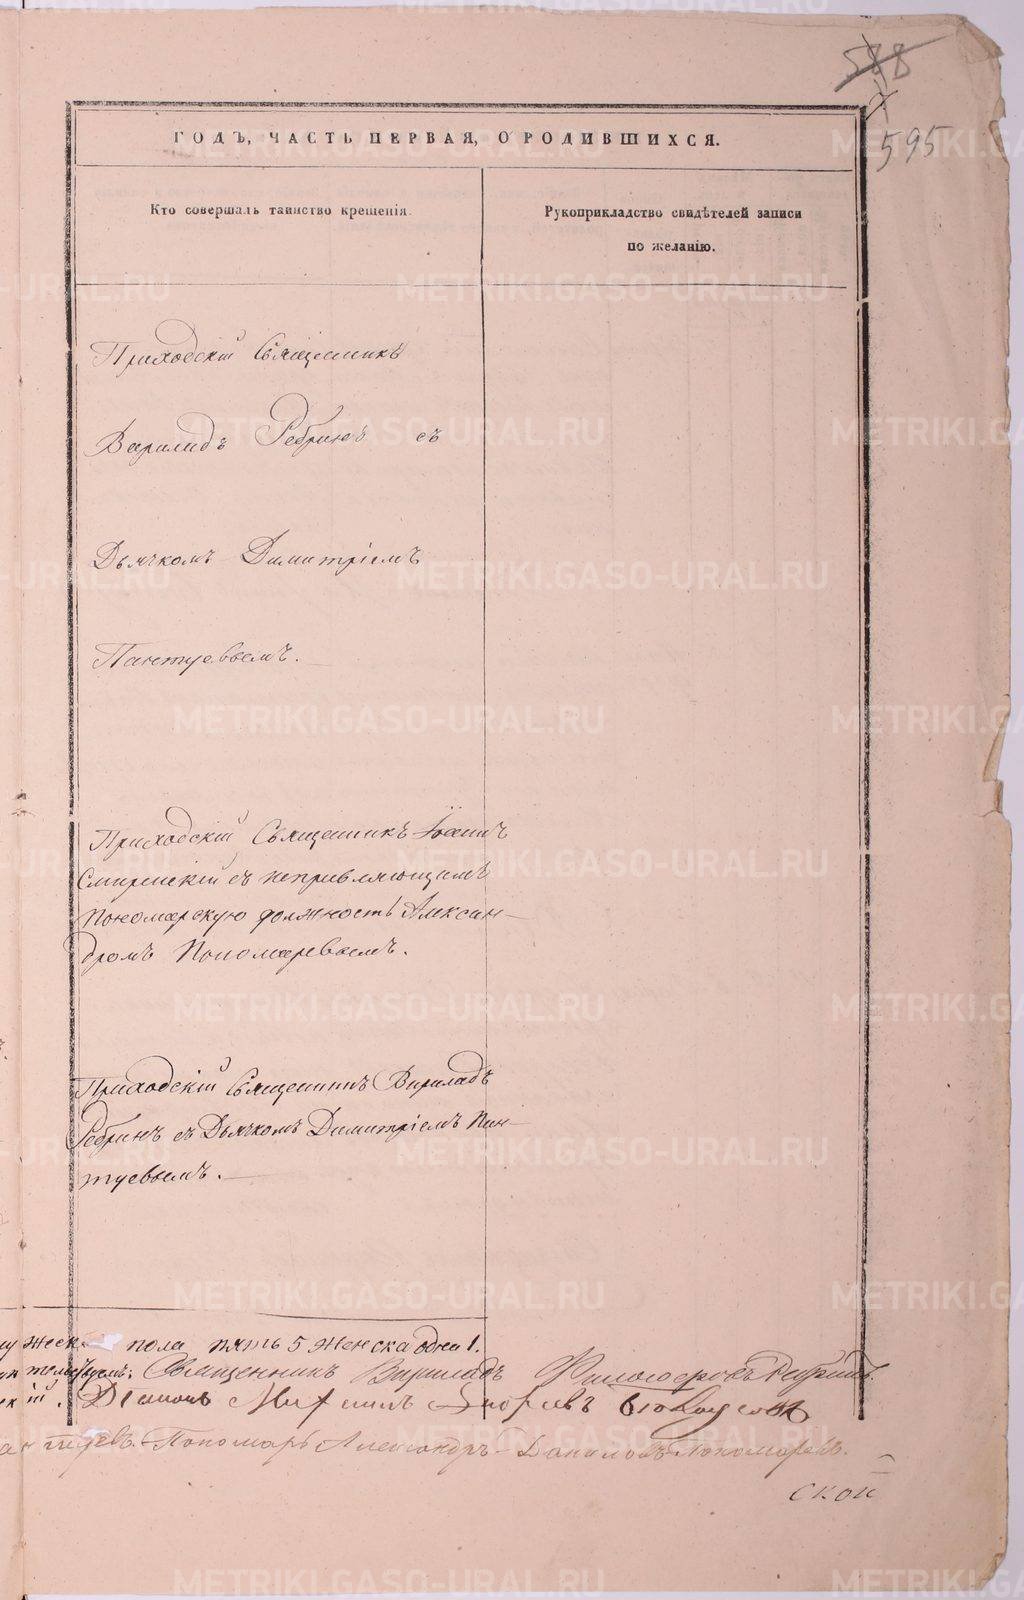 588
595
ГОДЪ, ЧАСТЬ ПЕРВАЯ, О РОДИВШИХСЯ.
Кто совершалъ таинство крещенія.
Рукоприкладство свидѣтелей записи
по желанію.
Приходскій Священникъ
Вириладъ Ребринъ съ
Дьячкомъ Димитріемъ
Пантуевымъ.
Приходскій Священникъ Іоаннъ
Смиренскій съ исправляющимъ
Пономарскую должность Алексан-
дромъ Пономаревымъ.
Приходскій Священникъ Вириладъ
Ребринъ съ Дьячкомъ Димитріемъ Пан-
туевымъ.
пола пять 5 женска одна 1.
Священникъ Вириладъ Ребринъ.
Діаконъ
Пономарь Александръ Даниловъ Пономаревъ.
ской
METRIKI.GASO-URAL.RU